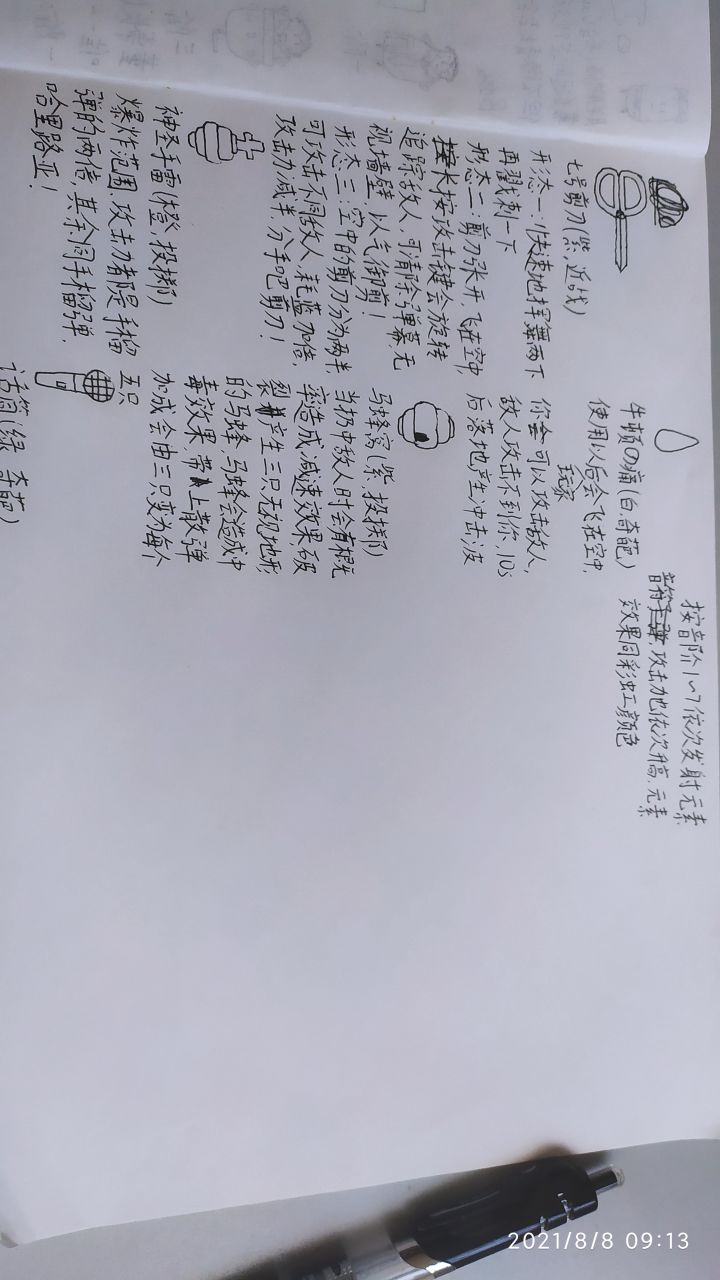 七号剪刀(紫,近战)
形态一:快速地挥舞两下
再戳刺一下
形态二:剪刀张开飞在空中,
长按攻击键会旋转
追踪敌人,可清除弹幕,无
视墙壁,以气御剪!
形态三:空中的剪刀分为两半,
可攻击不同敌人,耗蓝加倍,
攻击力减半,分手吧剪刀!
神圣手雷(橙,投掷)
爆炸范围,攻击力都是手榴
弹的两倍,其余同手榴弹,
哈里路亚!
牛顿の痛(白,奇葩)
使用以后会飞在空中,
玩家
你会可以攻击敌人,
敌人攻击不到你,10s
后落地产生冲击波
马蜂窝(紫,投掷)
当扔中敌人时会有概
率造成减速效果,破
裂产生三只无视地形
的马蜂,马蜂会造成中
毒效果,带上散弹
加成会由三只变为每个
五只
话筒(绿,奇葩)
按音阶1~7依次发射元素
音符,攻击力也依次升高,元素
效果同彩虹颜色
2021/8/8 09:13